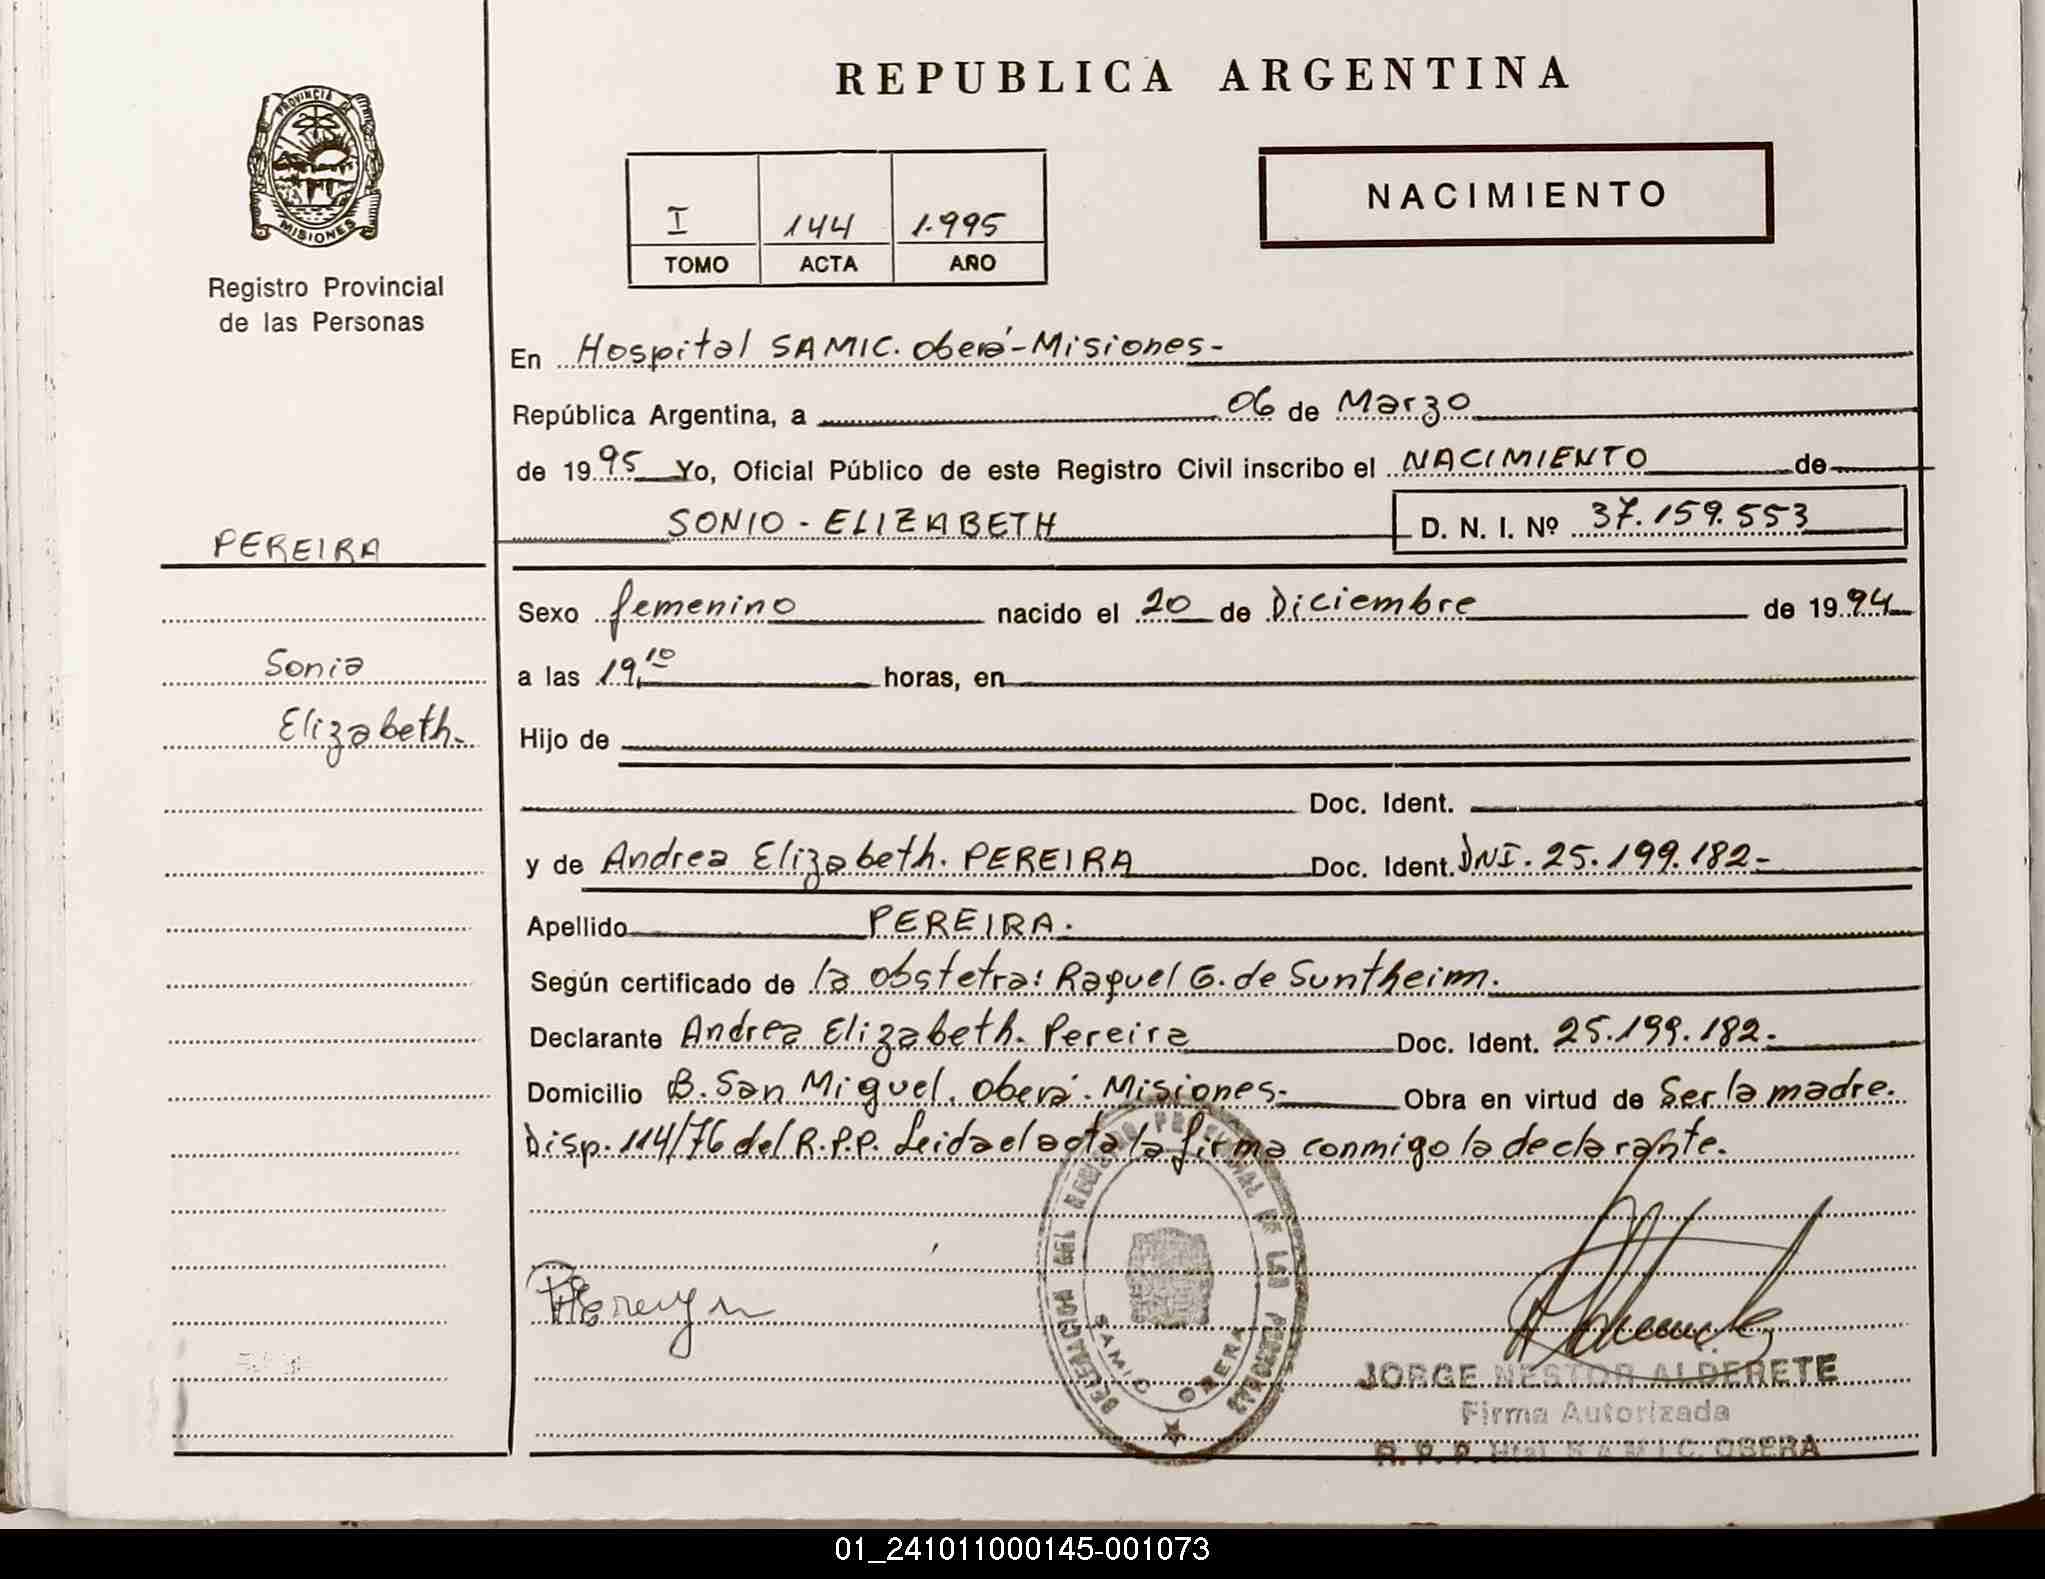 REPUBLICA ARGENTINA
PROVINCIA DE
MISIONES
Registro Provincial
de las Personas
I 144 1.995
TOMO ACTA AÑO
NACIMIENTO
En Hospital SAMIC. Oberá-Misiones-
República Argentina, a 06 de Marzo
de 1995 Yo, Oficial Público de este Registro Civil inscribo el NACIMIENTO de
SONIO - ELIZABETH D. N. I. Nº 37.159.553
PEREIRA
Sonia
Elizabeth.
Sexo femenino nacido el 20 de Diciembre de 1994
a las 19,10 horas, en
Hijo de
Doc. Ident.
y de Andrea Elizabeth. PEREIRA Doc. Ident. DNI. 25.199.182-
Apellido PEREIRA.
Según certificado de la obstetra: Raquel G. de Suntheim.
Declarante Andrea Elizabeth. Pereira Doc. Ident. 25.199.182.
Domicilio B. San Miguel. Oberá. Misiones- Obra en virtud de Ser la madre.
Disp. 114/76 del R.P.P. Leida el acta la firma conmigo la declarante.
DELEGACION DEL REGISTRO PROVINCIAL DE LAS PERSONAS
SAMIC OBERA
JORGE NESTOR ALDERETE
Firma Autorizada
R. P. P. Htal. S.A.M.I.C. OBERA
01_241011000145-001073